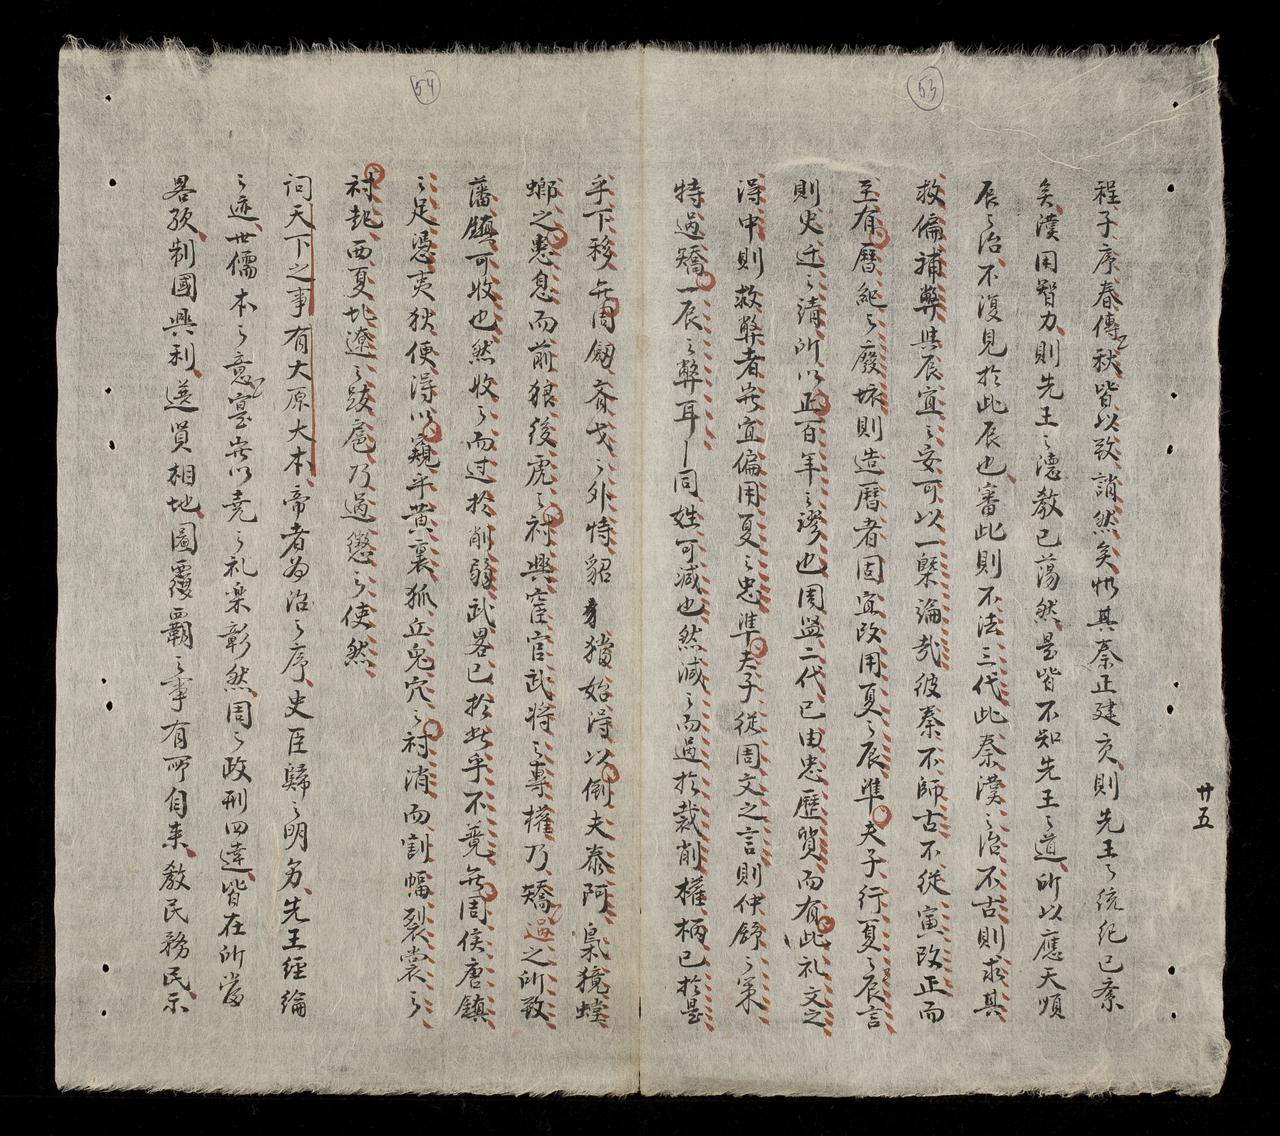 53
廿五
程子序春傳秋皆以致誚然矣惟其秦正建亥則先王之統紀已紊
矣漢用智力則先王之德教已蕩然是皆不知先王之道所以應天順
辰之治不復見於此辰也審此則不法三代此秦漢之治不古則求其
救偏補弊其辰宜之安可以一槩論哉彼秦不師古不從寅改正而
至有曆紀之廢壞則造曆者固宜改用夏之辰準夫子行夏之辰言
則史迁之請所以正百年之謬也周監二代已由忠歷質而有此礼文之
得中則救弊者安宜偏用夏之忠準夫子從周文之言則仲舒之策
特過矯一辰之弊耳同姓可減也然減之而過於裁削權柄已於是
54
乎下移無周劔斉戈之外恃貂豸獨始得以倒夫泰阿梟獍螳
螂之患息而前狼後虎之衬興宦官武将之專權乃矯過之所致
藩鎮可收也然收之而过於削弱武畧已於此乎不競無周侯唐鎮
之足憑夷狄便得以窺乎黄裏狐丘兔穴之衬消而割幅裂裳之
衬起西夏北遼之跋扈乃過懲之使然
问天下之事有大原大本帝者为治之序史臣歸之明夯先王經綸
之迹世儒本之意寔無以堯之礼楽彰然周之政刑四達皆在所當
畧欤制國興利選賢相地圖覆覇之事有所自来教民務民示